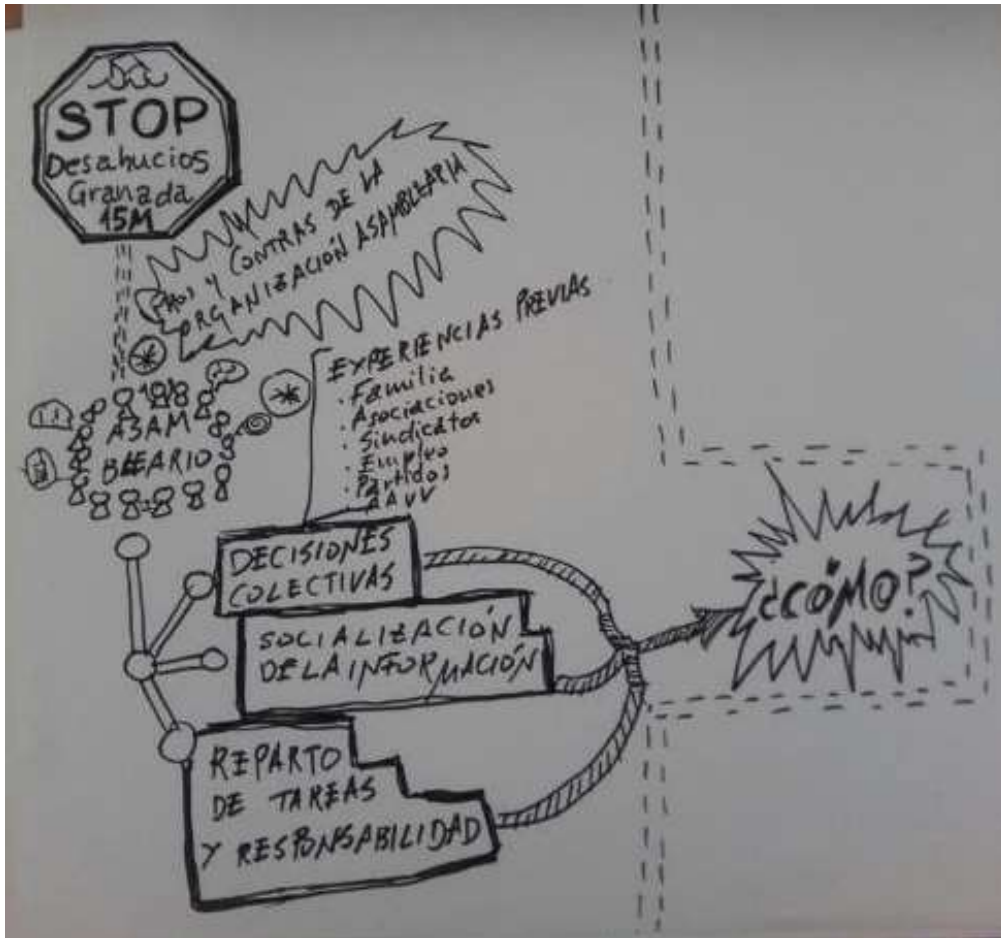 STOP
Desahucios
Granada
15M
PROS Y CONTRAS DE LA
ORGANIZACIÓN ASAMBLEARIA
EXPERIENCIAS PREVIAS
· Familia
· Asociaciones
· Sindicatos
· Empleo
· Partidos
· AAVV
ASAM
BLEARIO
DECISIONES
COLECTIVAS
SOCIALIZACIÓN
DE LA INFORMACIÓN
REPARTO
DE TAREAS
Y RESPONSABILIDAD
¿CÓMO?